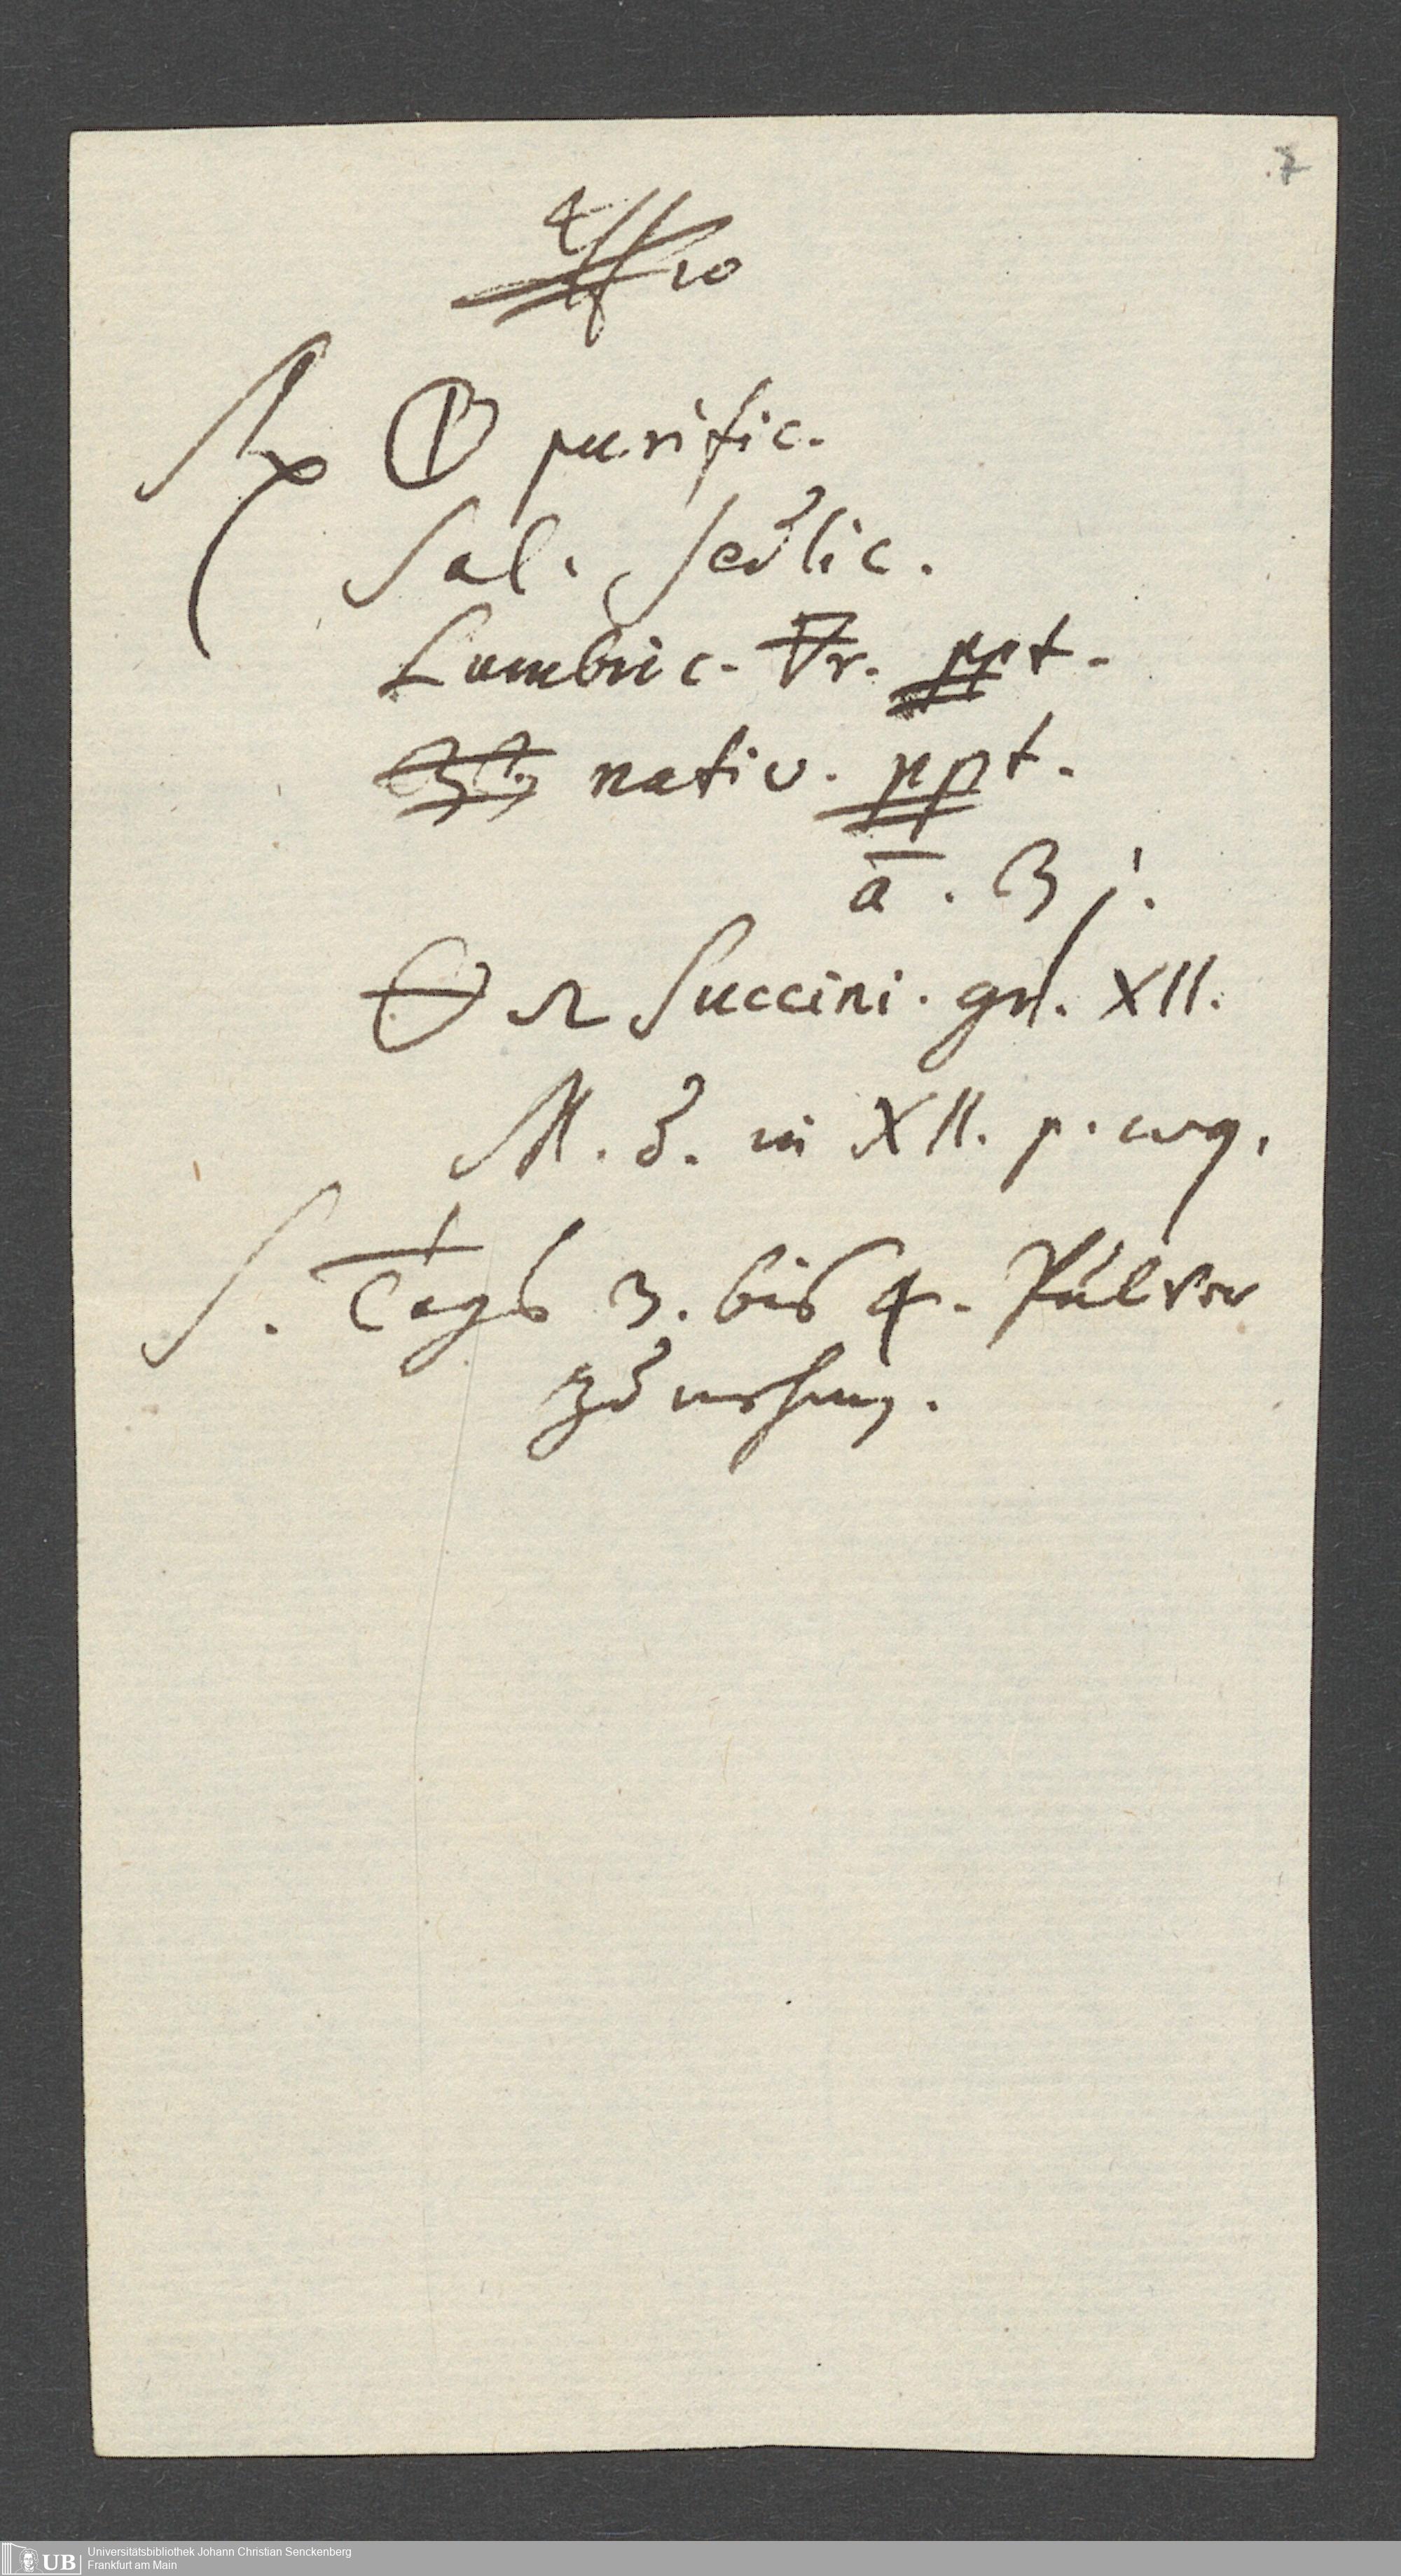 7
℞ 🜕 purific.
Sal. Sedlic.
Lumbric. 🜃r. ppt.
nativ. ppt.
ā. ʒ j.
🜔 Succini. gr. XII.
M. d. in XII. p. æq.
S. Tags 3. bis 4. Pulver
zu nehmen.
Universitätsbibliothek Johann Christian Senckenberg
UB
Frankfurt am Main